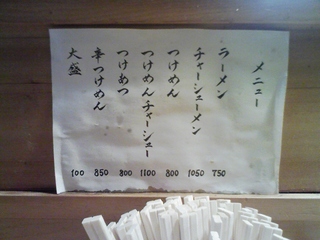 メニュー
ラーメン 750
チャーシューメン 1050
つけめん 800
つけめんチャーシュー 1100
つけあつ 800
辛つけめん 850
大盛 100